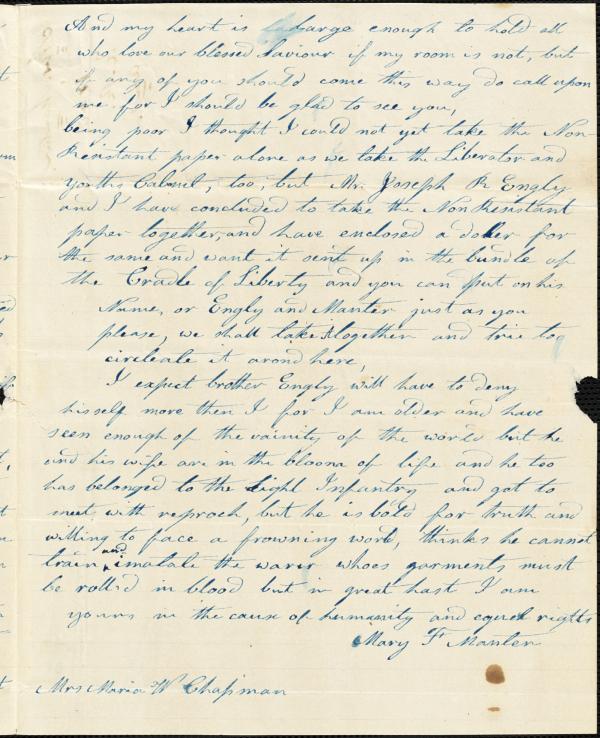 And my heart is large enough to hold all
who love our blessed Saviour if my room is not, but
if any of you should come this way do call upon
me for I should be glad to see you,
being poor I thought I could not yet take the Non-
Resistant paper alone as we take the Liberator and
youths Cabinet, too, but Mr. Joseph R Engly
and I have concluded to take the Non Resistant
paper together, and have enclosed a doller for
the same and want it sent up in the bundle of
the Cradle of Liberty and you can put on his
Name, or Engly and Manter just as you
please, we shall take it together and trie to
circleate it arond here,
I expect brother Engly will have to deny
hisself more then I for I am older and have
seen enough of the vainity of the world but he
and his wife are in the bloom of life and he too
has belonged to the Light Infantry and got to
meet with reproch, but he is bold for truth and
willing to face a frowning world, thinks he cannot
train and imatate the warer whoes garments must
be roll'd in blood but in great hast I am
yours in the cause of humanity and equel rights
Mary F Manter
Mrs Maria W Chapman